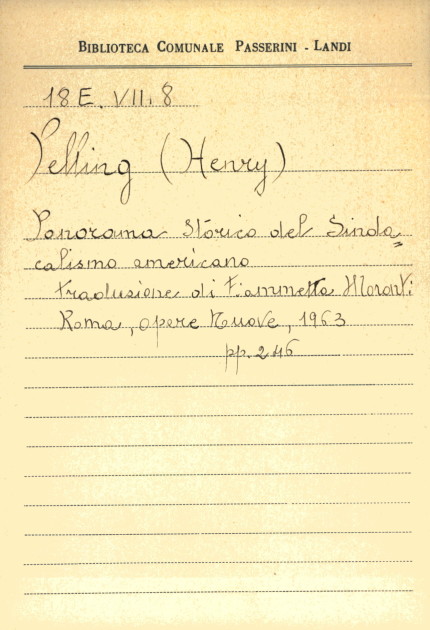 BIBLIOTECA COMUNALE PASSERINI - LANDI
18 E. VII. 8
Pelling (Henry)
Panorama Storico del Sinda=
calismo americano
traduzione di Fiammetta Moranti
Roma, opere Nuove, 1963
pp. 246